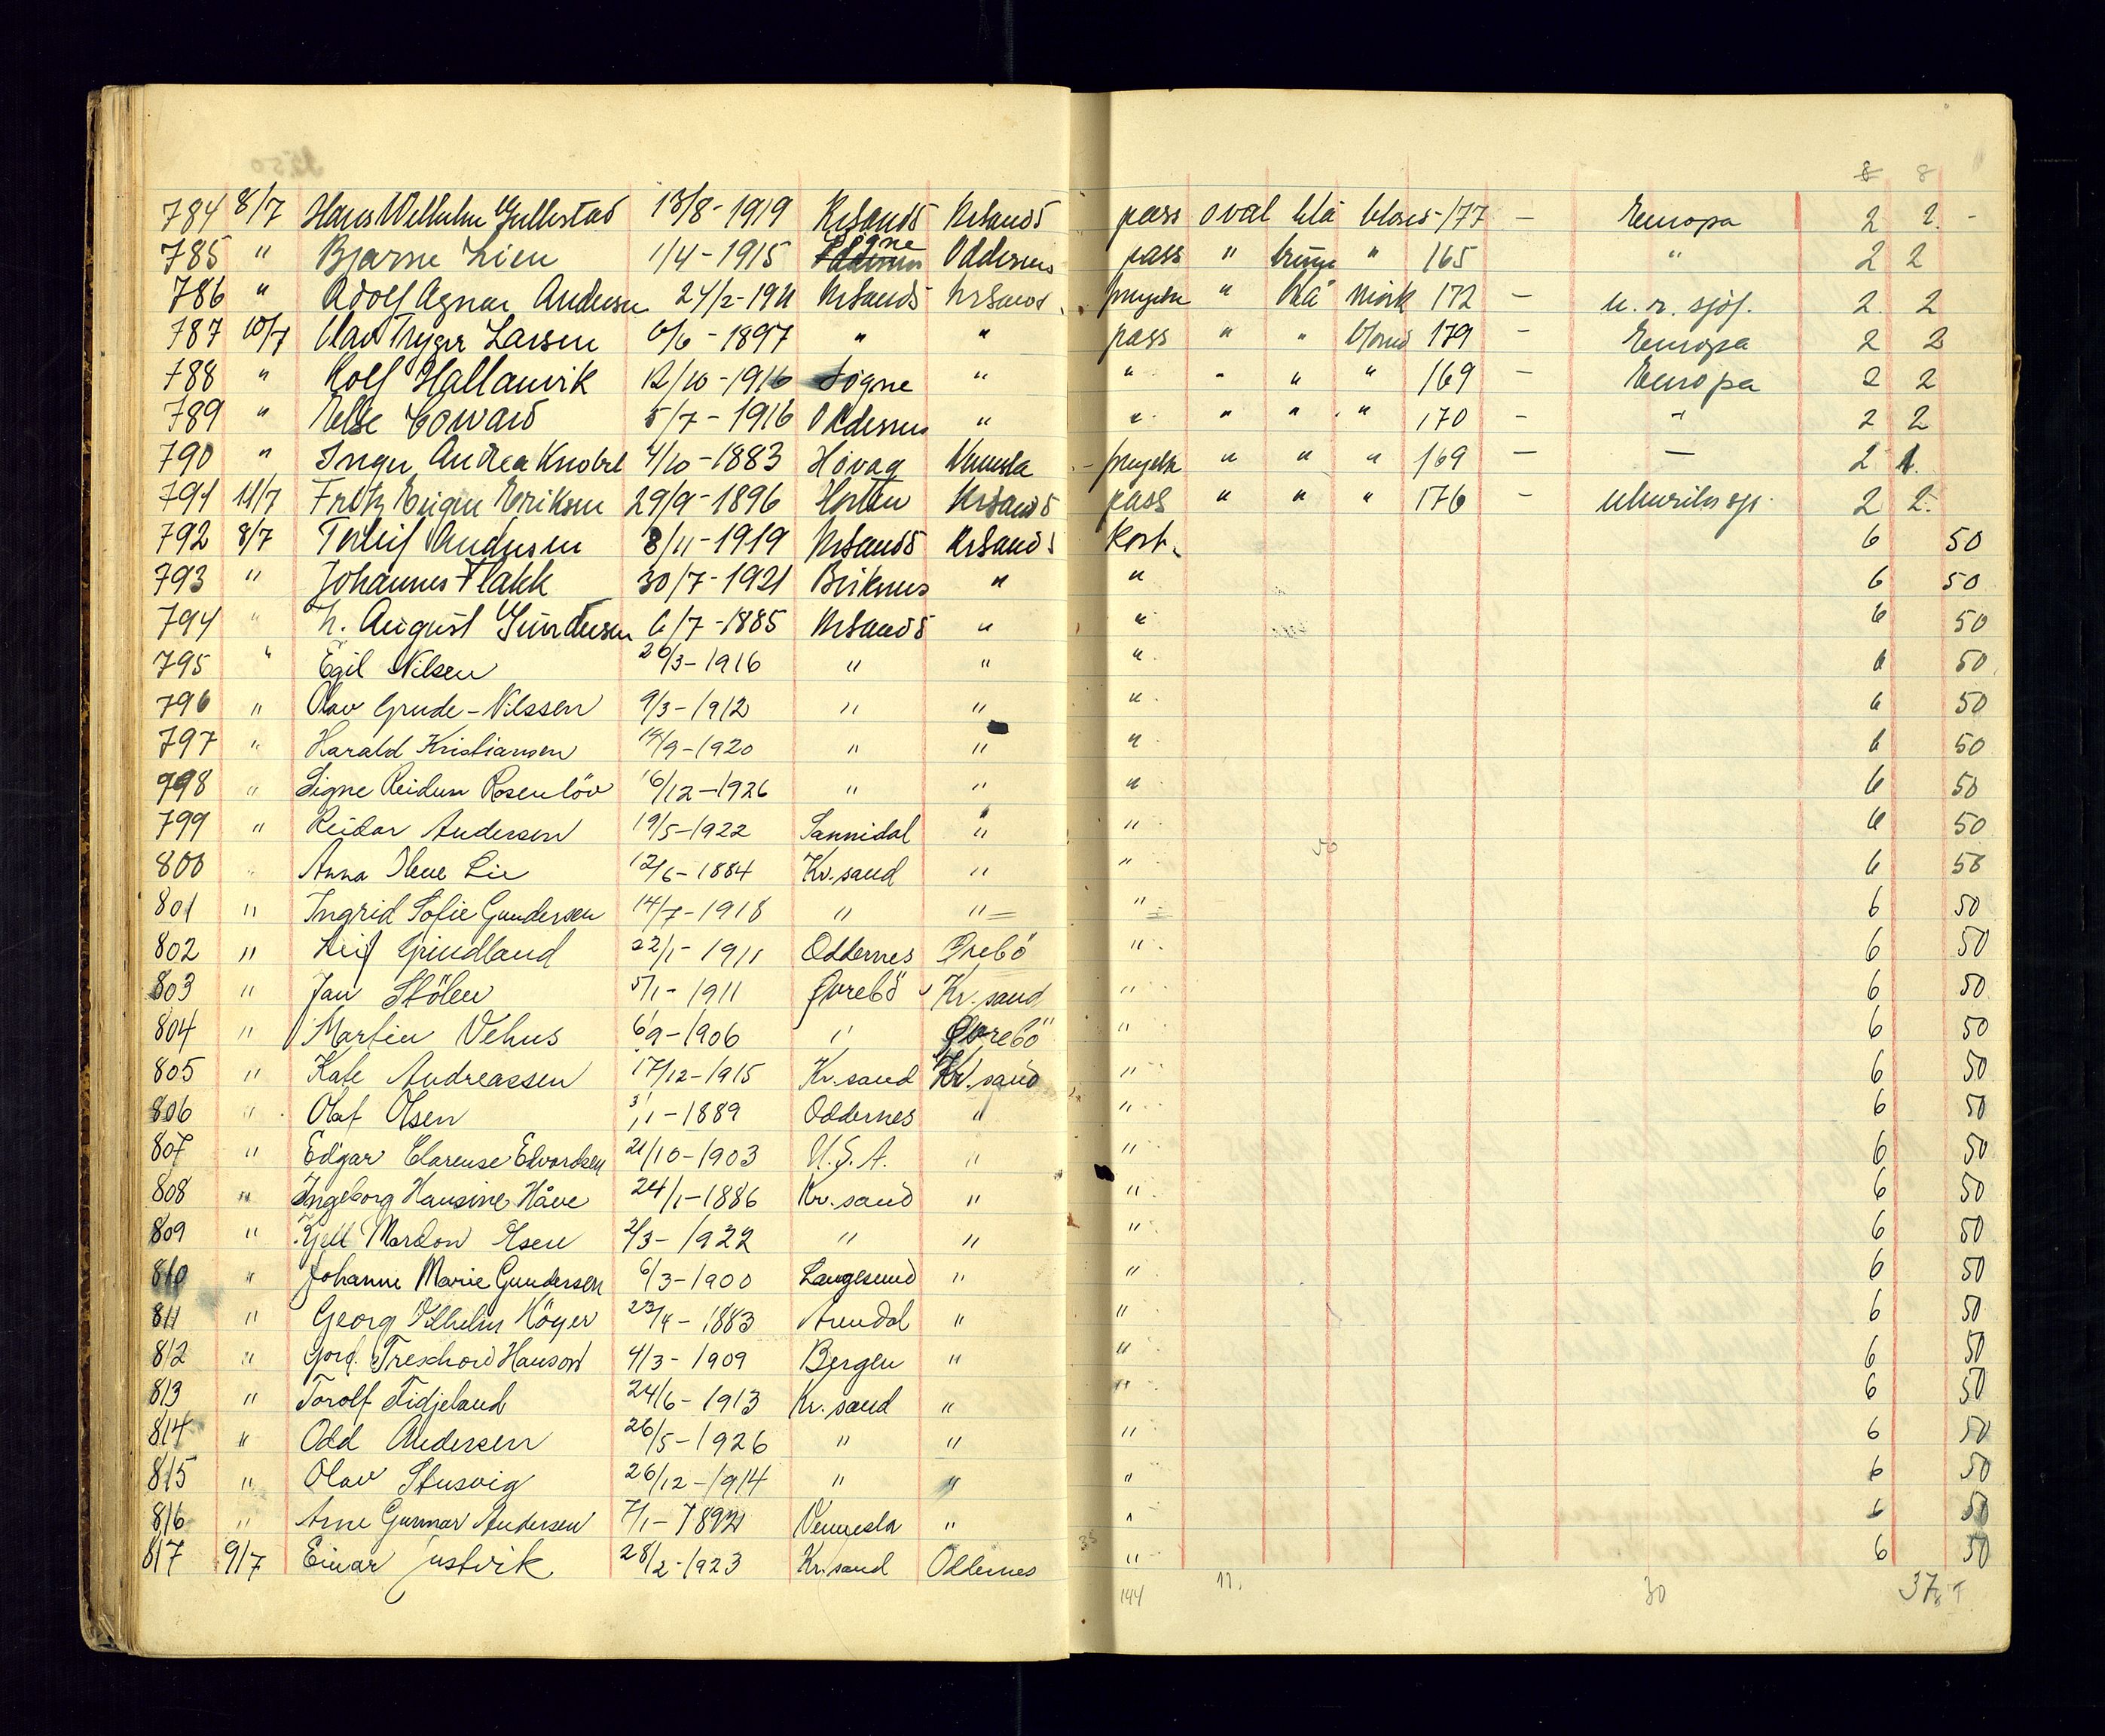 8 8
784 8/7 Hans Wilhelm Gullestad 13/8-1919 KrSand KrSand pass oval blå blond -177 - Europa 2 2. -
785 " Bjarne Lien 1/4-1915 Søgne Oddernes pass " brune " 165 " 2 2
786 " Adolf Agnar Andersen 24/2-1911 KrSand KrSand " blå mörk 172 - u. r. sjöf. 2 2
787 10/7 Olav Trygve Larsen 6/6-1897 " " pass " " blond 179 - Europa 2 2
788 " Rolf Hallanvik 12/10-1916 Søgne " " " " " 169 - Europa 2 2
789 " Else Coward 5/7-1916 Oddernes " " " " " 170 - " 2 2
790 " Inger Andrea 4/10-1883 Høvåg Vennesla " " " 169 - - 2 1.
791 11/7 Fritz Eugen Eriksen 29/9-1896 Horten KrSand pass " " " 176 - 2 2.
792 8/7 Torleif Andersen 8/11-1919 KrSand KrSand Kort. 6 50
793 " Johannes Flakk 30/7-1921 Birkenes " " 6 50
794 " H. August Gundersen 6/7-1885 KrSand " " 6 50
795 " Egil Nilsen 26/3-1916 " " " 6 50
796 " Olav Grude-Nilssen 9/3-1912 " " " 6 50
797 " Harald Kristiansen 14/9-1920 " " " 6 50
798 " Signe Reidun Rosenlöv 16/12-1926 " " " 6 50
799 " Reidar Andersen 19/5-1922 Sannidal " " 6 50
800 " Anna Olene Lie 12/6-1884 Kr.sand " " 6 50
801 " Ingrid Sofie Gundersen 14/7-1918 " " " 6 50
802 " Leif Grindland 22/1-1911 Oddernes Örebö " 6 50
803 " Jan Stölen 5/1-1911 Øvrebö Kr.sand " 6 50
804 " Martin Vehus 6/9-1906 " Øvrebö " 6 50
805 " Kate Andreassen 17/12-1915 Kr.sand Kr.sand " 6 50
806 " Olaf Olsen 3/1-1889 Oddernes " " 6 50
807 " Edgar Clarense Edvardsen 21/10-1903 U.S.A. " " 6 50
808 " Ingeborg Hansine Håve 24/1-1886 Kr.sand " " 6 50
809 " Kjell Mardon 2/3-1922 " " " 6 50
810 " Johanne Marie Gundersen 6/3-1900 Langesund " " 6 50
811 " Georg Vilhelm Höyer 23/4-1883 Arendal " " 6 50
812 " Treschow Hanson 4/3-1909 Bergen " " 6 50
813 " Torolf Fidjeland 24/6-1913 Kr.sand " " 6 50
814 " Odd Andersen 26/5-1926 " " " 6 50
815 " Olav Stusvig 26/12-1914 " " " 6 50
816 " Arne Gunnar Andersen 7/1- Vennesla " " 6 50
817 9/7 Einar Justvik 28/2-1923 Kr.sand Oddernes " 6 50
144 11. 30